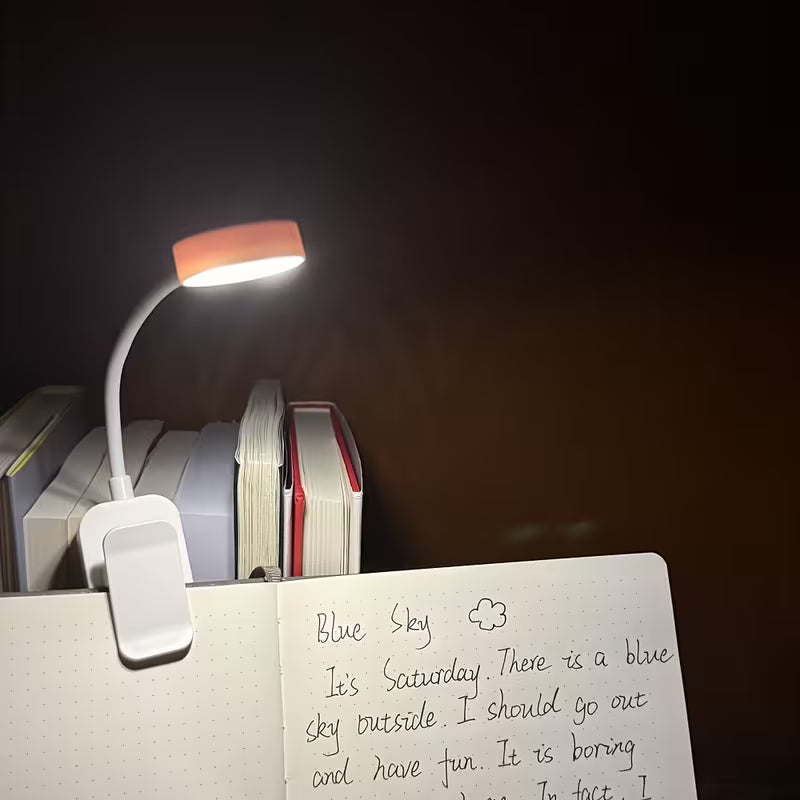 Blue Sky
It's Saturday. There is a blue
sky outside. I should go out
and have fun. It is boring
In fact, I